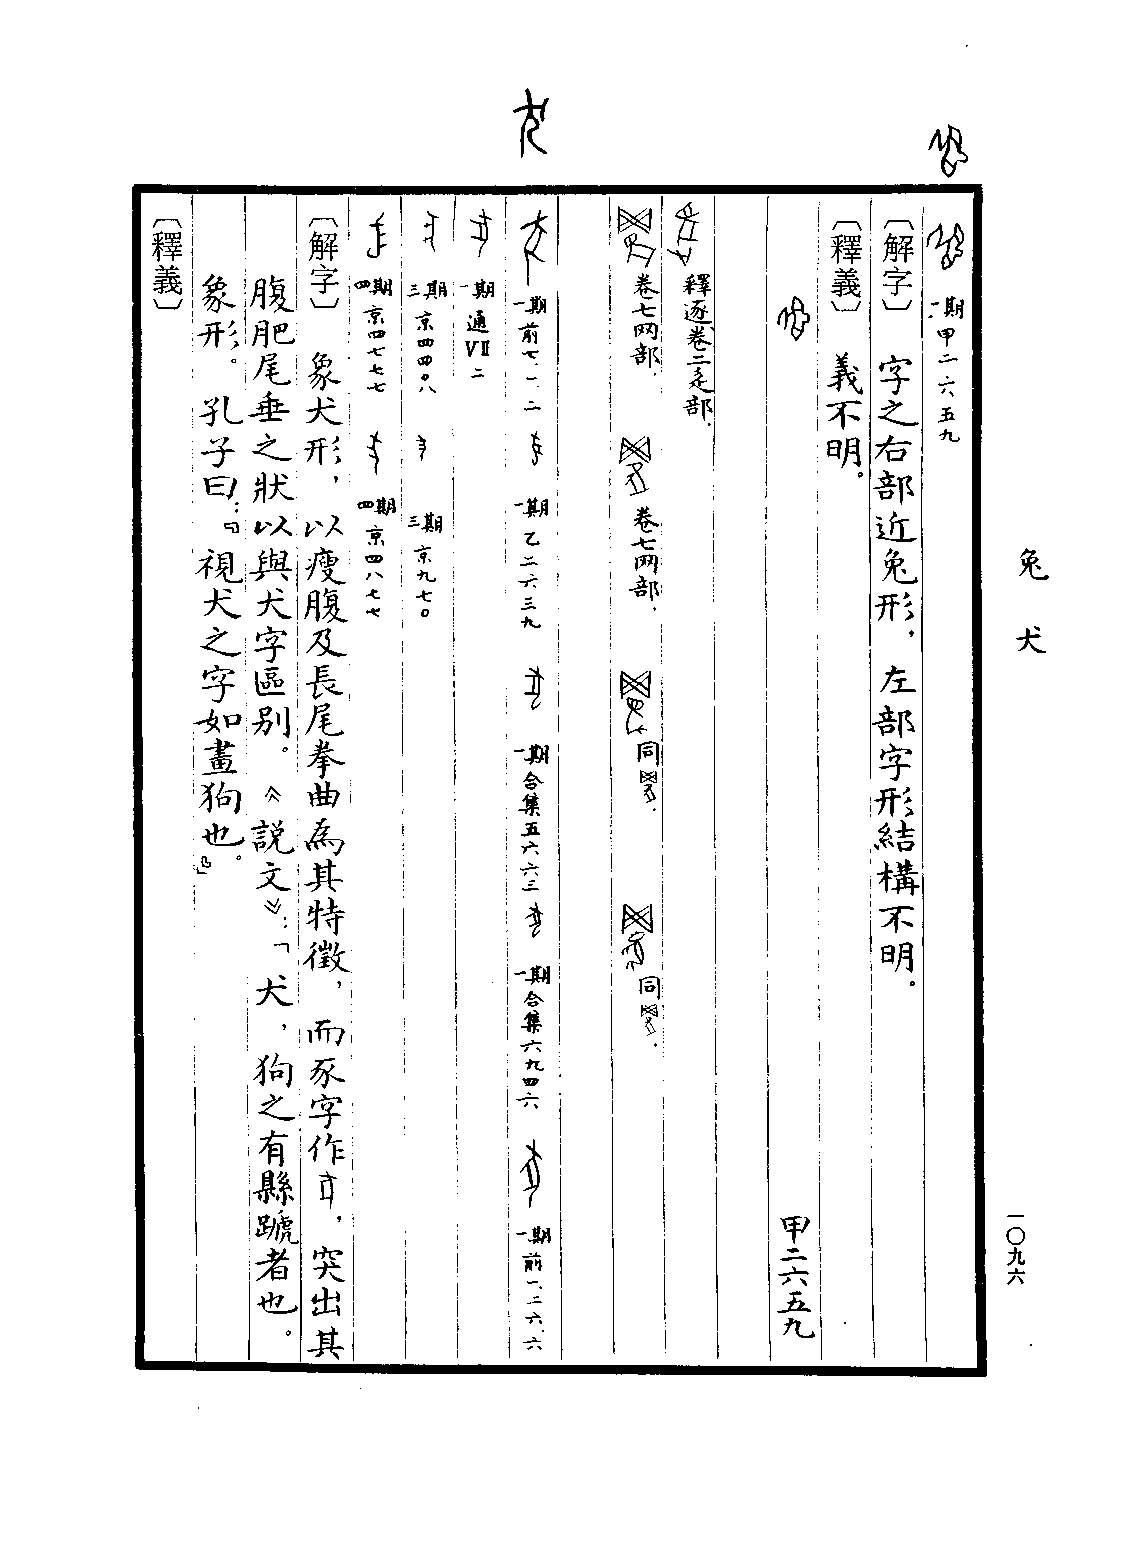 兔 犬
一〇九六
一期 甲二六五九
〔解字〕 字之右部近兔形，左部字形結構不明。
〔釋義〕 義不明。
甲二六五九
釋逐卷二辵部．
卷七网部． 卷七网部． 同． 同．
一期 前七、一二 一期 乙二六三九 一期 合集五六六三 一期 合集六九四六 一期 前一、二六、六
一期 通VII二
三期 京四四〇八 三期 京九七〇
四期 京四七七七 四期 京四八七七
〔解字〕 象犬形，以瘦腹及長尾拳曲為其特徵，而豕字作，突出其
腹肥尾垂之狀以與犬字區別。《說文》：「犬，狗之有縣蹏者也。
象形。孔子曰：『視犬之字如畫狗也。』」
〔釋義〕